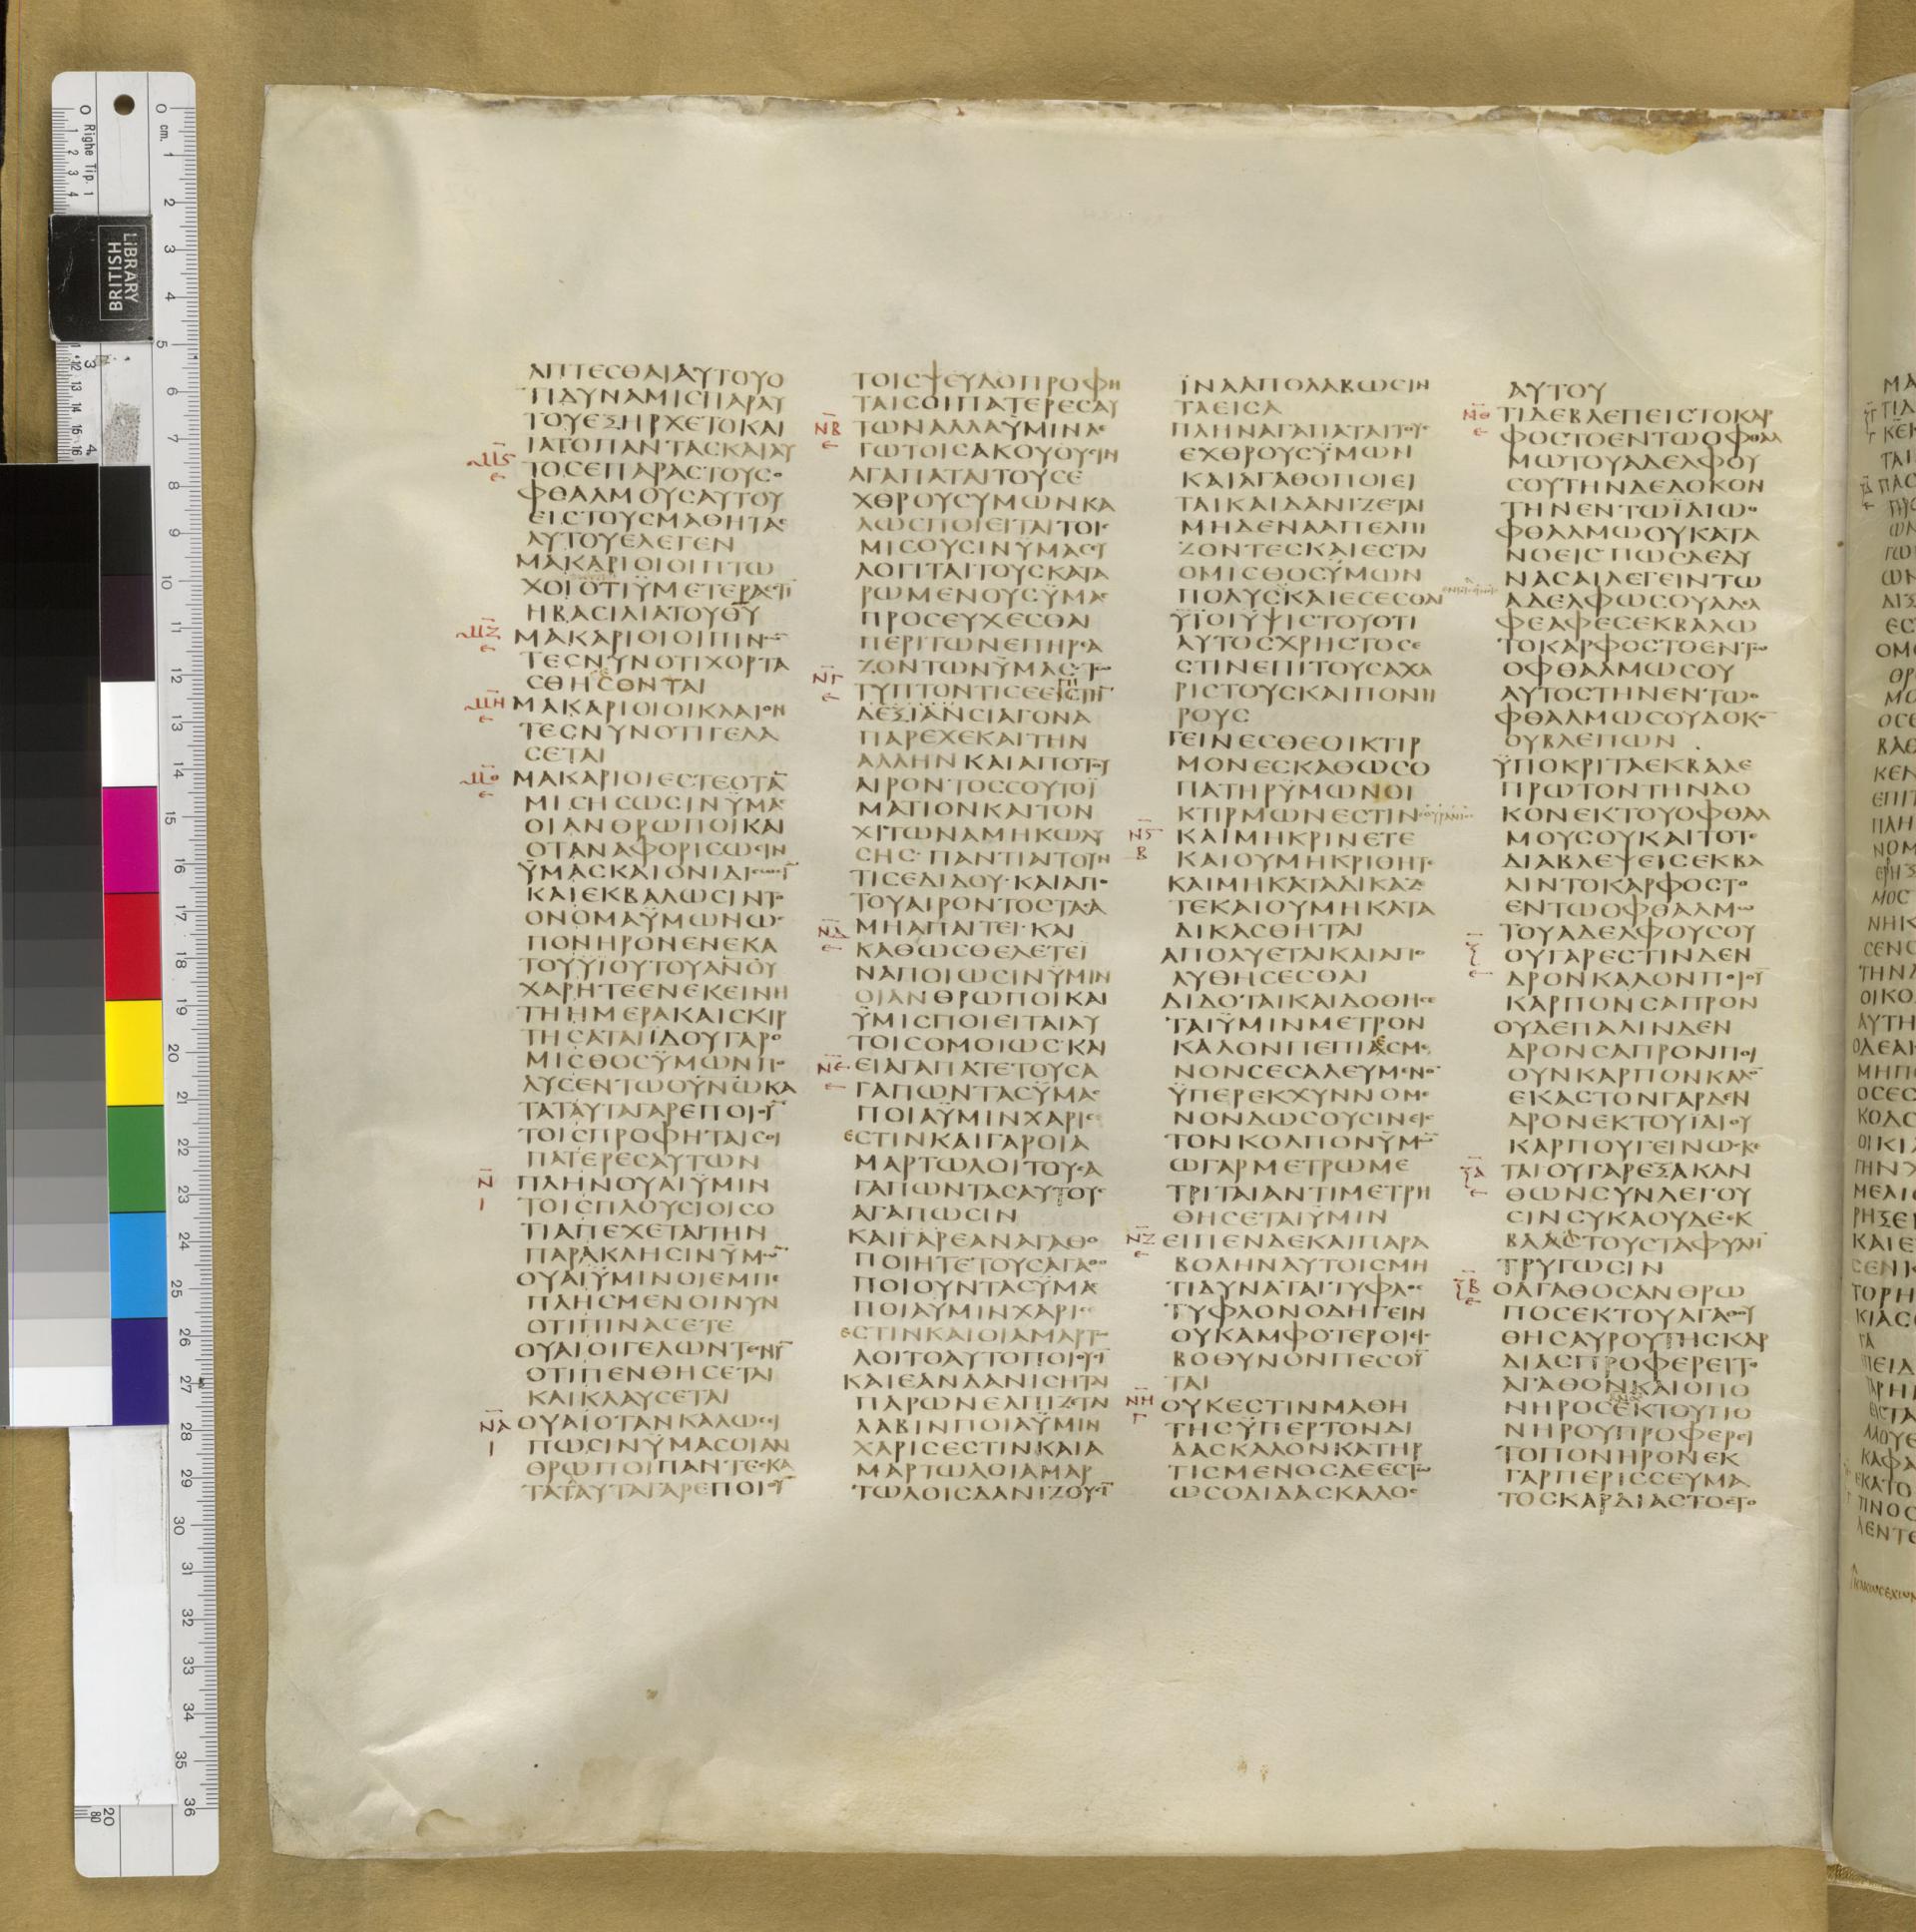 ΑΠΤΕCΘΑΙΑΥΤΟΥΟ
ΤΙΔΥΝΑΜΙCΠΑΡΑΥ
ΤΟΥΕΞΗΡΧΕΤΟΚΑΙ
ΙΑΤΟΠΑΝΤΑCΚΑΙΑΥ
ΜϚ ΤΟCΕΠΑΡΑCΤΟΥCΟ
ΦΘΑΛΜΟΥCΑΥΤΟΥ
ΕΙCΤΟΥCΜΑΘΗΤΑC
ΑΥΤΟΥΕΛΕΓΕΝ
ΜΑΚΑΡΙΟΙΟΙΠΤΩ
ΧΟΙΟΤΙΫΜΕΤΕΡΑΕΤΙ
ΗΒΑCΙΛΙΑΤΟΥΘΥ
ΜΖ ΜΑΚΑΡΙΟΙΟΙΠΙΝΩ
ΤΕCΝΥΝΟΤΙΧΟΡΤΑ
CΘΗCΟΝΤΑΙ
ΜΗ ΜΑΚΑΡΙΟΙΟΙΚΛΑΙΟΝ
ΤΕCΝΥΝΟΤΙΓΕΛΑ
CΕΤΑΙ
ΜΘ ΜΑΚΑΡΙΟΙΕCΤΕΟΤΑ
ΜΙCΗCΩCΙΝΫΜΑC
ΟΙΑΝΘΡΩΠΟΙΚΑΙ
ΟΤΑΝΑΦΟΡΙCΩCΙΝ
ΫΜΑCΚΑΙΟΝΙΔΙCΩCΙ
ΚΑΙΕΚΒΑΛΩCΙΝΤΟ
ΟΝΟΜΑΫΜΩΝΩC
ΠΟΝΗΡΟΝΕΝΕΚΑ
ΤΟΥΥΙΟΥΤΟΥΑΝΟΥ
ΧΑΡΗΤΕΕΝΕΚΕΙΝΗ
ΤΗΗΜΕΡΑΚΑΙCΚΙΡ
ΤΗCΑΤΑΙΙΔΟΥΓΑΡΟ
ΜΙCΘΟCΫΜΩΝΠΟ
ΛΥCΕΝΤΩΟΥΝΩΚΑ
ΤΑΤΑΥΤΑΓΑΡΕΠΟΙΟΥ
ΤΟΙCΠΡΟΦΗΤΑΙCΟΙ
ΠΑΤΕΡΕCΑΥΤΩΝ
Ν ΠΛΗΝΟΥΑΙΫΜΙΝ
Ι ΤΟΙCΠΛΟΥCΙΟΙCΟ
ΤΙΑΠΕΧΕΤΑΙΤΗΝ
ΠΑΡΑΚΛΗCΙΝΫΜΩ
ΟΥΑΙΫΜΙΝΟΙΕΜΠΕ
ΠΛΗCΜΕΝΟΙΝΥΝ
ΟΤΙΠΙΝΑCΕΤΕ
ΟΥΑΙΟΙΓΕΛΩΝΤΕCΝΥ
ΟΤΙΠΕΝΘΗCΕΤΑΙ
ΚΑΙΚΛΑΥCΕΤΑΙ
ΝΑ ΟΥΑΙΟΤΑΝΚΑΛΩCΕΙ
Ι ΠΩCΙΝΫΜΑCΟΙΑΝ
ΘΡΩΠΟΙΠΑΝΤΕCΚΑ
ΤΑΤΑΥΤΑΓΑΡΕΠΟΙΟΥ
ΤΟΙCΨΕΥΔΟΠΡΟΦΗ
ΤΑΙCΟΙΠΑΤΕΡΕCΑΥ
ΝΒ ΤΩΝΑΛΛΑΫΜΙΝΛΕ
ΓΩΤΟΙCΑΚΟΥΟΥCΙΝ
ΑΓΑΠΑΤΑΙΤΟΥCΕ
ΧΘΡΟΥCΥΜΩΝΚΑ
ΛΩCΠΟΙΕΙΤΑΙΤΟΙC
ΜΙCΟΥCΙΝΥΜΑCΕΥ
ΛΟΓΙΤΑΙΤΟΥCΚΑΤΑ
ΡΩΜΕΝΟΥCΫΜΑC
ΠΡΟCΕΥΧΕCΘΑΙ
ΠΕΡΙΤΩΝΕΠΗΡΕΑ
ΖΟΝΤΩΝΫΜΑCΤΩ
ΝΓ ΤΥΠΤΟΝΤΙCΕΕΙCΤΗ
ΔΕΞΙΑΝCΙΑΓΟΝΑ
ΠΑΡΕΧΕΚΑΙΤΗΝ
ΑΛΛΗΝΚΑΙΑΠΟΤΟΥ
ΑΙΡΟΝΤΟCCΟΥΤΟΪ
ΜΑΤΙΟΝΚΑΙΤΟΝ
ΧΙΤΩΝΑΜΗΚΩΛΥ
CΗC ΠΑΝΤΙΑΙΤΟΥΝ
ΤΙCΕΔΙΔΟΥ ΚΑΙΑΠΟ
ΤΟΥΑΙΡΟΝΤΟCΤΑCΑ
ΝΔ ΜΗΑΠΑΙΤΕΙ ΚΑΙ
ΚΑΘΩCΘΕΛΕΤΕΪ
ΝΑΠΟΙΩCΙΝΫΜΙΝ
ΟΙΑΝΘΡΩΠΟΙΚΑΙ
ΫΜΙCΠΟΙΕΙΤΑΙΑΥ
ΤΟΙCΟΜΟΙΩC ΚΑΙ
ΝΕ ΕΙΑΓΑΠΑΤΕΤΟΥCΑ
ΓΑΠΩΝΤΑCΫΜΑC
ΠΟΙΑΫΜΙΝΧΑΡΙC
ΕCΤΙΝΚΑΙΓΑΡΟΙΑ
ΜΑΡΤΩΛΟΙΤΟΥCΑ
ΓΑΠΩΝΤΑCΑΥΤΟΥC
ΑΓΑΠΩCΙΝ
ΚΑΙΓΑΡΕΑΝΑΓΑΘΟ
ΠΟΙΗΤΕΤΟΥCΑΓΑΘΟ
ΠΟΙΟΥΝΤΑCΥΜΑC
ΠΟΙΑΥΜΙΝΧΑΡΙC
ΕCΤΙΝΚΑΙΟΙΑΜΑΡΤΩ
ΛΟΙΤΟΑΥΤΟΠΟΙΟΥCΙ
ΚΑΙΕΑΝΔΑΝΙCΗΤΑΙ
ΠΑΡΩΝΕΛΠΙΖΕΤΑΙ
ΛΑΒΙΝΠΟΙΑΫΜΙΝ
ΧΑΡΙCΕCΤΙΝΚΑΙΑ
ΜΑΡΤΩΛΟΙΑΜΑΡ
ΤΩΛΟΙCΔΑΝΙΖΟΥCΙ
ΪΝΑΑΠΟΛΑΒΩCΙΝ
ΤΑΕΙCΑ
ΠΛΗΝΑΓΑΠΑΤΑΙΤΟΥC
ΕΧΘΡΟΥCΫΜΩΝ
ΚΑΙΑΓΑΘΟΠΟΙΕΙ
ΤΑΙΚΑΙΔΑΝΙΖΕΤΑΙ
ΜΗΔΕΝΑΑΠΕΛΠΙ
ΖΟΝΤΕCΚΑΙΕCΤΑΙ
ΟΜΙCΘΟCΫΜΩΝ
ΠΟΛΥCΚΑΙΕCΕCΘΑΙ
ΫΪΟΙΫΨΙCΤΟΥΟΤΙ
ΑΥΤΟCΧΡΗCΤΟCΕ
CΤΙΝΕΠΙΤΟΥCΑΧΑ
ΡΙCΤΟΥCΚΑΙΠΟΝΗ
ΡΟΥC
ΓΕΙΝΕCΘΕΟΙΚΤΙΡ
ΜΟΝΕCΚΑΘΩCΟ
ΠΑΤΗΡΥΜΩΝΟΙ
ΚΤΙΡΜΩΝΕCΤΙΝ
ΝϚ ΚΑΙΜΗΚΡΙΝΕΤΕ
Β ΚΑΙΟΥΜΗΚΡΙΘΗΤΕ
ΚΑΙΜΗΚΑΤΑΔΙΚΑΖΕ
ΤΕΚΑΙΟΥΜΗΚΑΤΑ
ΔΙΚΑCΘΗΤΑΙ
ΑΠΟΛΥΕΤΑΙΚΑΙΑΠΟ
ΛΥΘΗCΕCΘΑΙ
ΔΙΔΟΤΑΙΚΑΙΔΟΘΗCΕ
ΤΑΙΫΜΙΝΜΕΤΡΟΝ
ΚΑΛΟΝΠΕΠΙΑCΜΕ
ΝΟΝCΕCΑΛΕΥΜΕΝΟ
ΫΠΕΡΕΚΧΥΝΝΟΜΕ
ΝΟΝΔΩCΟΥCΙΝΕΙC
ΤΟΝΚΟΛΠΟΝΫΜΩ
ΩΓΑΡΜΕΤΡΩΜΕ
ΤΡΙΤΑΙΑΝΤΙΜΕΤΡΗ
ΘΗCΕΤΑΙΫΜΙΝ
ΝΖ ΕΙΠΕΝΔΕΚΑΙΠΑΡΑ
ΒΟΛΗΝΑΥΤΟΙCΜΗ
ΤΙΔΥΝΑΤΑΙΤΥΦΛΟC
ΤΥΦΛΟΝΟΔΗΓΕΙΝ
ΟΥΚΑΜΦΟΤΕΡΟΙΕΙC
ΒΟΘΥΝΟΝΠΕCΟΥ
ΤΑΙ
ΝΗ ΟΥΚΕCΤΙΝΜΑΘΗ
Γ ΤΗCΫΠΕΡΤΟΝΔΙ
ΔΑCΚΑΛΟΝΚΑΤΗΡ
ΤΙCΜΕΝΟCΔΕΕCΤΩ
ΩCΟΔΙΔΑCΚΑΛΟC
ΑΥΤΟΥ
ΝΘ ΤΙΔΕΒΛΕΠΕΙCΤΟΚΑΡ
ΦΟCΤΟΕΝΤΩΟΦΘΑΛ
ΜΩΤΟΥΑΔΕΛΦΟΥ
CΟΥΤΗΝΔΕΔΟΚΟΝ
ΤΗΝΕΝΤΩΪΔΙΩΟ
ΦΘΑΛΜΩΟΥΚΑΤΑ
ΝΟΕΙC ΠΩCΔΕΔΥ
ΝΑCΑΙΛΕΓΕΙΝΤΩ
ΑΔΕΛΦΩCΟΥΑΔΕΛ
ΦΕΑΦΕCΕΚΒΑΛΩ
ΤΟΚΑΡΦΟCΤΟΕΝΤΩ
ΟΦΘΑΛΜΩCΟΥ
ΑΥΤΟCΤΗΝΕΝΤΩΟ
ΦΘΑΛΜΩCΟΥΔΟΚΟ
ΟΥΒΛΕΠΩΝ
ΫΠΟΚΡΙΤΑΕΚΒΑΛΕ
ΠΡΩΤΟΝΤΗΝΔΟ
ΚΟΝΕΚΤΟΥΟΦΘΑΛ
ΜΟΥCΟΥΚΑΙΤΟΤΕ
ΔΙΑΒΛΕΨΕΙCΕΚΒΑ
ΛΙΝΤΟΚΑΡΦΟCΤΟ
ΕΝΤΩΟΦΘΑΛΜΩ
ΤΟΥΑΔΕΛΦΟΥCΟΥ
Ξ ΟΥΓΑΡΕCΤΙΝΔΕΝ
ΔΡΟΝΚΑΛΟΝΠΟΙΟΥ
ΚΑΡΠΟΝCΑΠΡΟΝ
ΟΥΔΕΠΑΛΙΝΔΕΝ
ΔΡΟΝCΑΠΡΟΝΠΟΙ
ΟΥΝΚΑΡΠΟΝΚΑΛΟ
ΕΚΑCΤΟΝΓΑΡΔΕΝ
ΔΡΟΝΕΚΤΟΥΪΔΙΟΥ
ΚΑΡΠΟΥΓΕΙΝΩCΚΕ
ΞΑ ΤΑΙΟΥΓΑΡΕΞΑΚΑΝ
ΘΩΝCΥΝΛΕΓΟΥ
CΙΝCΥΚΑΟΥΔΕΕΚ
ΒΛΑCΤΟΥCΤΑΦΥΛΗ
ΤΡΥΓΩCΙΝ
ΞΒ ΟΑΓΑΘΟCΑΝΘΡΩ
ΠΟCΕΚΤΟΥΑΓΑΘΟΥ
ΘΗCΑΥΡΟΥΤΗCΚΑΡ
ΔΙΑCΠΡΟΦΕΡΕΙΤΟ
ΑΓΑΘΟΝΚΑΙΟΠΟ
ΝΗΡΟCΕΚΤΟΥΠΟ
ΝΗΡΟΥΠΡΟΦΕΡΕΙ
ΤΟΠΟΝΗΡΟΝΕΚ
ΓΑΡΠΕΡΙCCΕΥΜΑ
ΤΟCΚΑΡΔΙΑCΤΟCΤΟ
BRITISH
LIBRARY